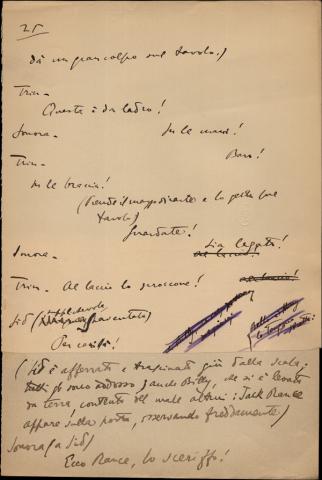 25
dà un gran colpo sul tavolo.)
Trin -
Questa è da ladro!
Sonora -
Su le mani!
Trin -
Baro!
Su le braccia!
(Prende il mazzo di carte e lo getta sul
tavolo)
Guardate!
Sia legato!
Sonora -
Trin - Al laccio lo scroscone!
al laccio!
Sid (supplichevole, spaventato)
Per carità!
(Sid è afferrato e trascinato giù dalla scala;
tutti gli sono addosso, anche Billy, che si è levato
da terra, contento del male altrui: Jack Rance
appare sulla porta, osservando freddamente)
Sonora (a Sid)
Ecco Rance, lo sceriffo!